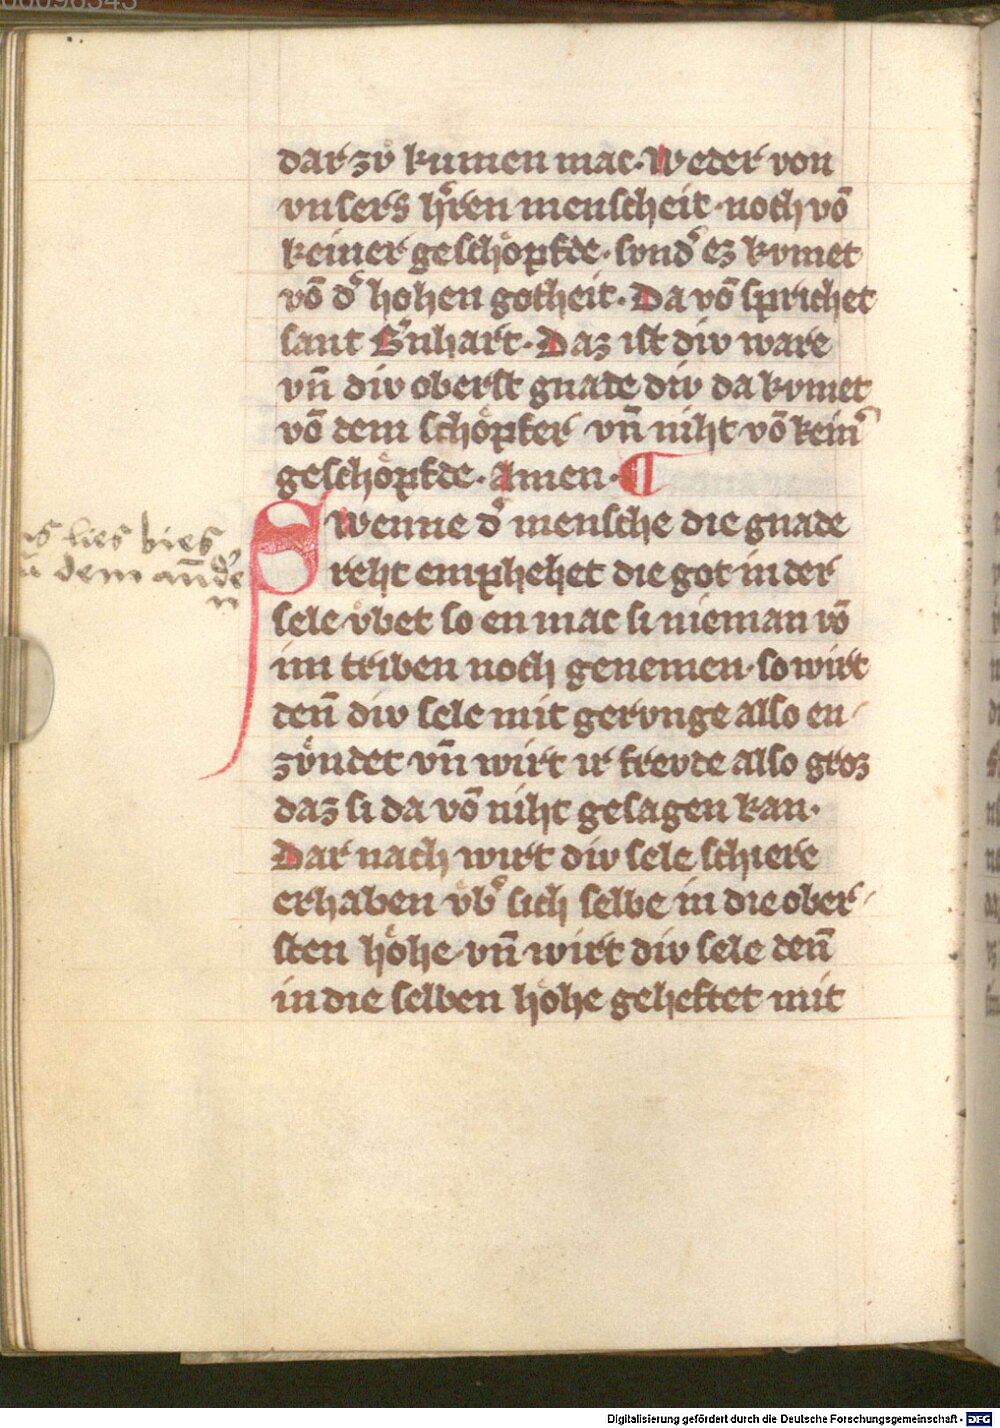 dar zv̊ kumen mac. Weder von
vnsers hͤren menscheit. noch vō
keiner geschöpfde. sundͤ ez kvmet
vō dͤ hohen gotheit. Da vō sprichet
sant Bͤnhart. Daz ist div ware
vn̄ div oberst gnade div da kvmet
vō dem schöpfer vn̄ niht vō keinͤ
geschöpfde. Amen. ¶
Swenne dͤ mensche die gnade
reht emphehet die got in der
sele v̊bet so en mac si nieman vō
im triben noch genemen. so wirt
den̄ div sele mit gervnge also en
zv̊ndet vn̄ wirt ir frevde also groz
daz si da vō niht gesagen kan.
Dar nach wirt div sele schiere
erhaben v̊bͤ sich selbe in die ober
sten höhe. vn̄ wirt div sele den̄
in die selben höhe geheftet mit
lies bies
dem an̄dͤe
n
Digitalisierung gefördert durch die Deutsche Forschungsgemeinschaft - DFG